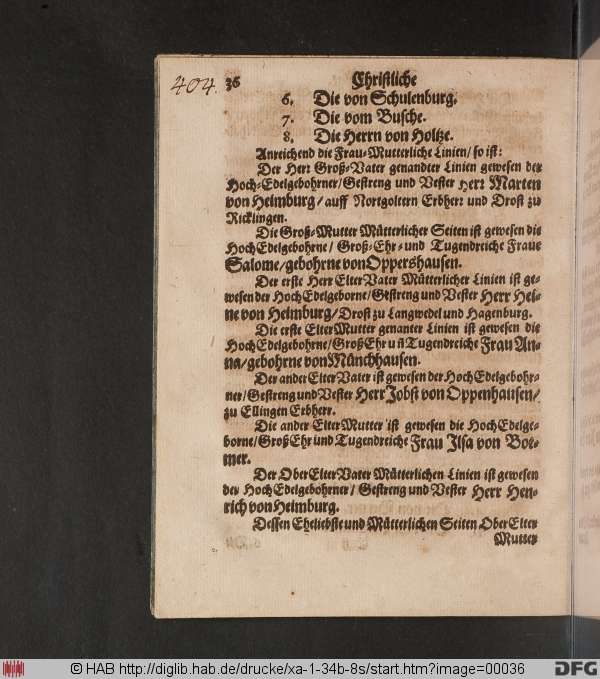 404.
36 Christliche
6. Die von Schulenburg.
7. Die vom Busche.
8. Die Herrn von Holtze.
Anreichend die Frau-Mutterliche Linien/ so ist:
Der Herr Groß-Vater genandter Linien gewesen der
Hoch-Edelgebohrner/ Gestreng und Vester Herr Marten
von Heimburg/ auff Nortgoltern Erbherr und Drost zu
Ricklingen.
Die Groß-Mutter Mütterlicher Seiten ist gewesen die
HochEdelgebohrne/ Groß-Ehr- und Tugendreiche Fraue
Salome/ gebohrne von Oppershausen.
Der erste Herr ElterVater Mütterlicher Linien ist ge-
wesen der HochEdelgeborne/ Gestreng und Vester Herr Hei-
ne von Heimburg/ Drost zu Langwedel und Hagenburg.
Die erste ElterMutter genanter Linien ist gewesen die
HochEdelgebohrne/ GroßEhr uñ Tugendreiche Frau An-
na/ gebohrne von Münchhausen.
Der ander ElterVater ist gewesen der HochEdelgebohr-
ner/ Gestreng und Vester Herr Jobst von Oppenhausen/
zu Ellingen Erbherr.
Die ander ElterMutter ist gewesen die HochEdelge-
borne/ GroßEhr und Tugendreiche Frau Ilsa von Bot-
mer.
Der OberElterVater Mütterlichen Linien ist gewesen
der HochEdelgebohrner/ Gestreng und Vester Herr Hen-
rich von Heimburg.
Dessen Eheliebste und Mütterlichen Seiten OberElter
Mutter
© HAB http://diglib.hab.de/drucke/xa-1-34b-8s/start.htm?image=00036
DFG